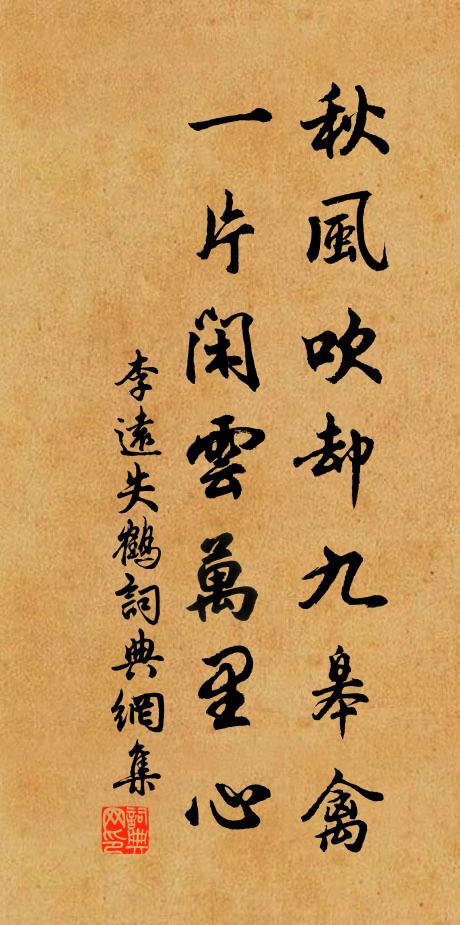 秋風吹却九皋禽
一片閑雲萬里心
李遠失鶴詞典網集
詞典网印